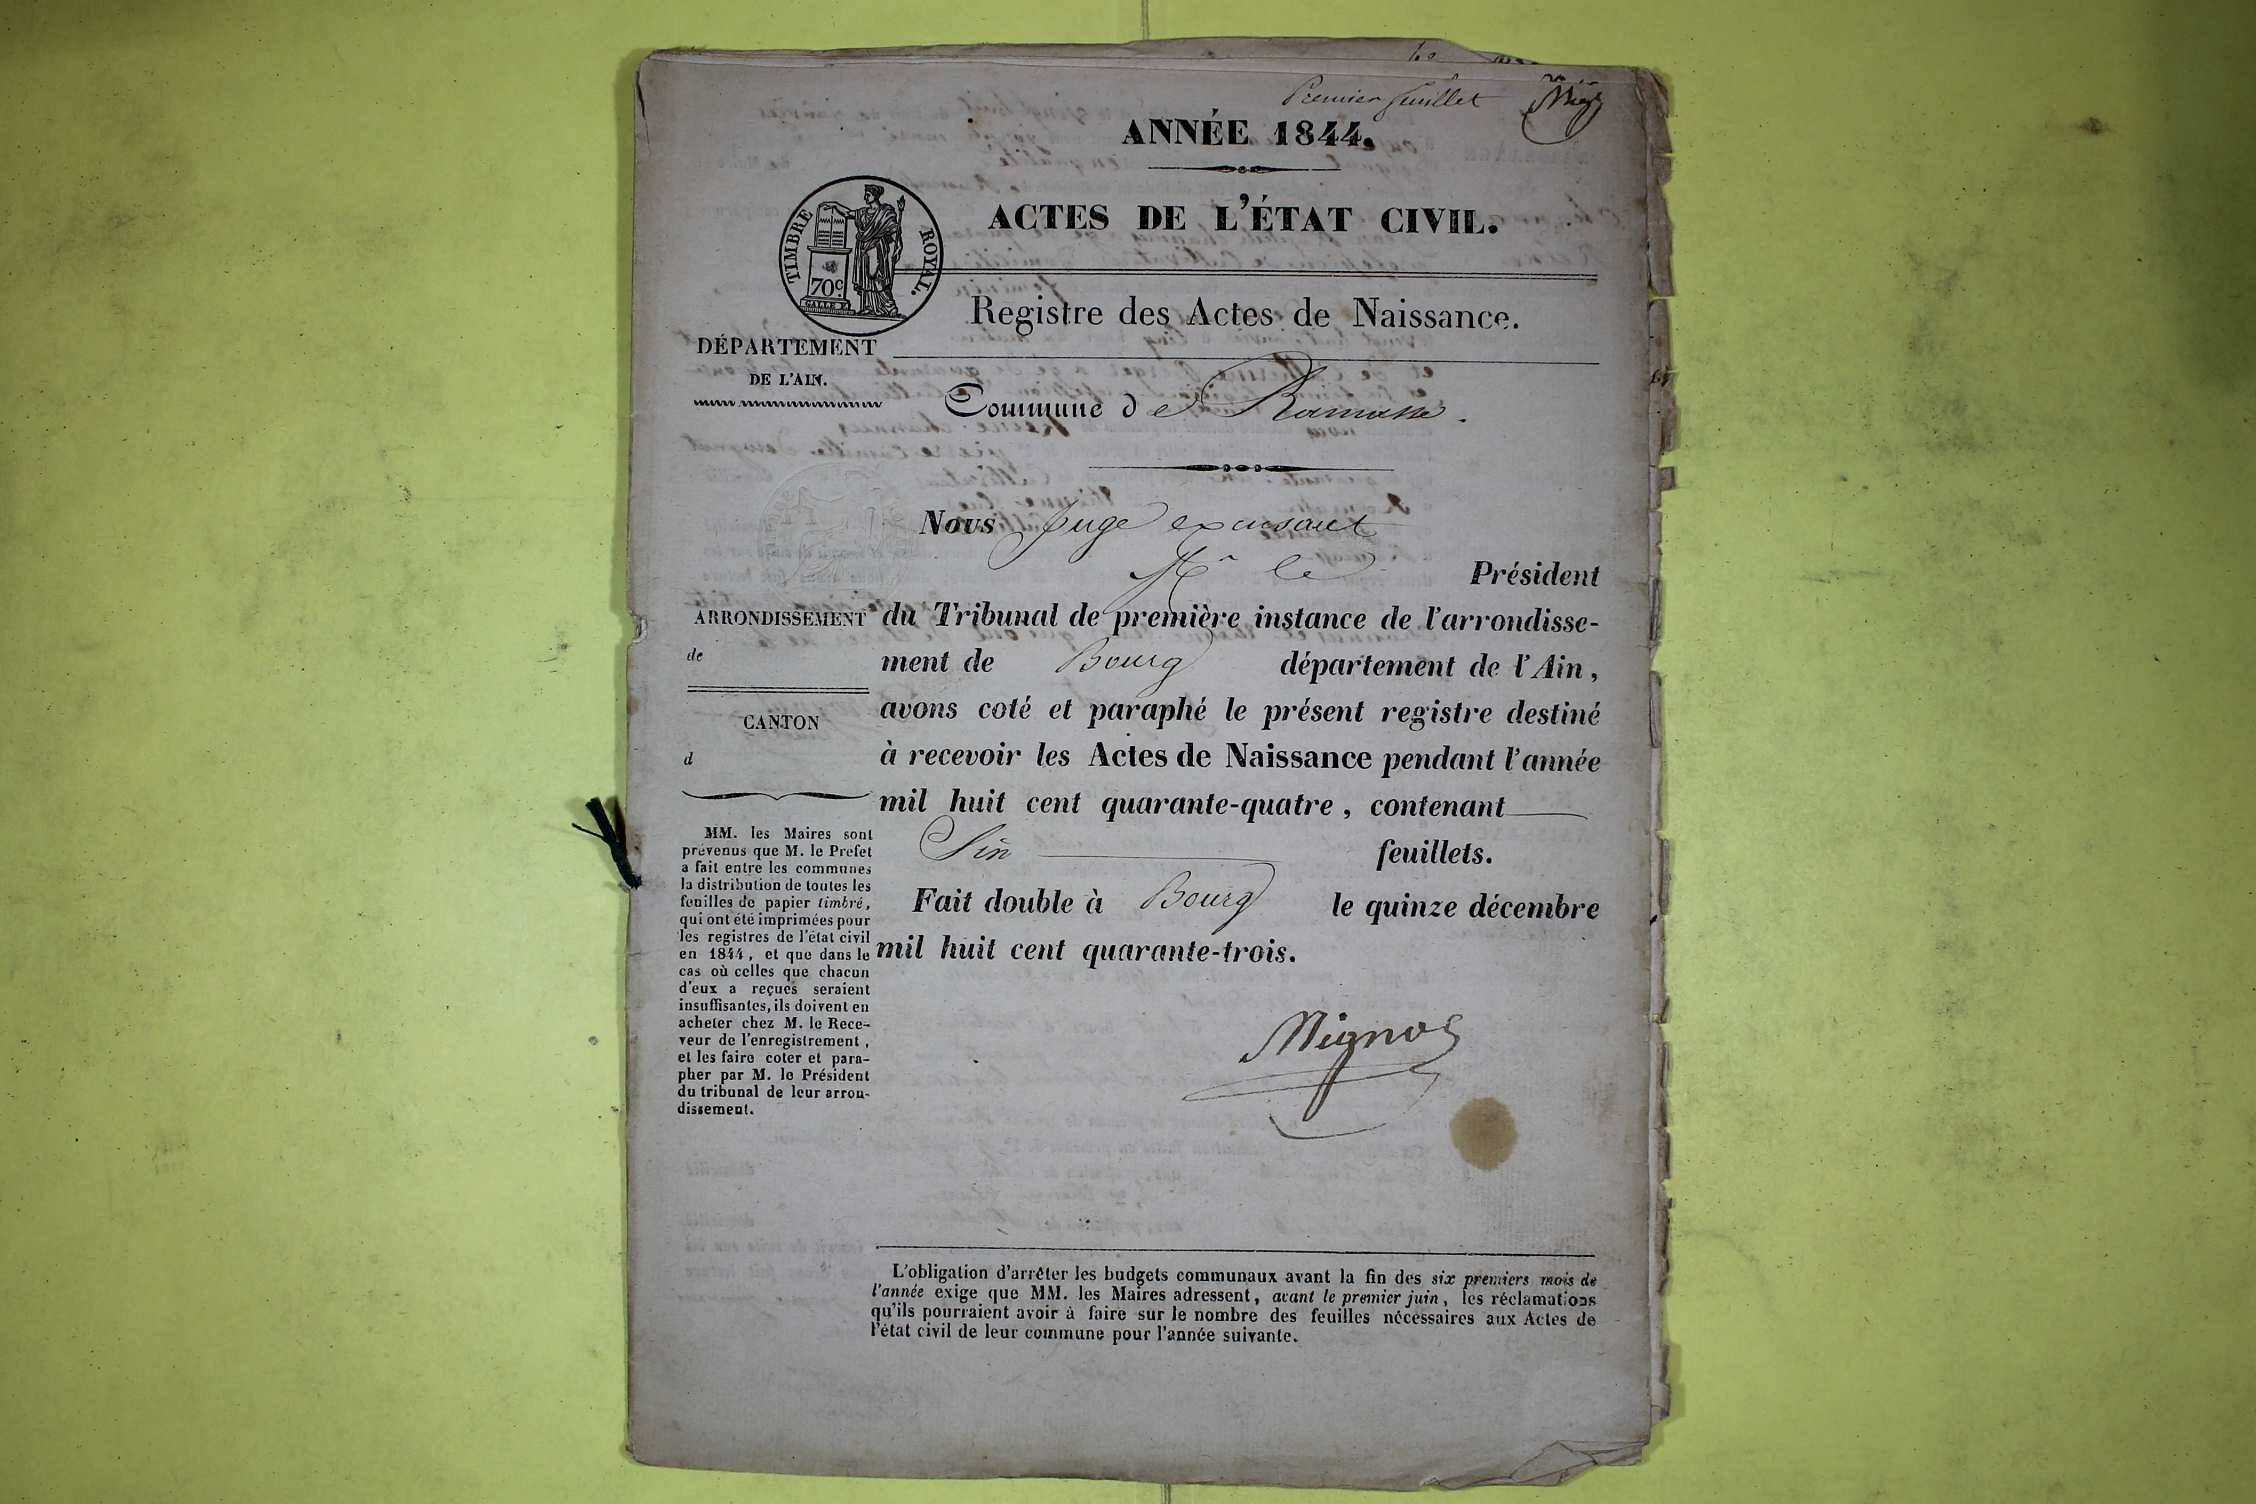 Premier feuillet
ANNÉE 1844.
ACTES DE L'ÉTAT CIVIL.
TIMBRE ROYAL.
70c.
Registre des Actes de Naissance.
DÉPARTEMENT
DE L'AIN.
Commune de Ramasse.
Nous Juge excusant
Mr le Président
ARRONDISSEMENT
de
CANTON
d
du Tribunal de première instance de l'arrondisse-
ment de Bourg département de l'Ain,
avons coté et paraphé le présent registre destiné
à recevoir les Actes de Naissance pendant l'année
mil huit cent quarante-quatre, contenant
Six feuillets.
Fait double à Bourg le quinze décembre
mil huit cent quarante-trois.
Mignot
MM. les Maires sont
prévenus que M. le Prefet
a fait entre les communes
la distribution de toutes les
feuilles de papier timbré,
qui ont été imprimées pour
les registres de l'état civil
en 1844, et que dans le
cas où celles que chacun
d'eux a reçues seraient
insuffisantes, ils doivent en
acheter chez M. le Rece-
veur de l'enregistrement,
et les faire coter et para-
pher par M. le Président
du tribunal de leur arron-
dissement.
L'obligation d'arrêter les budgets communaux avant la fin des six premiers mois de
l'année exige que MM. les Maires adressent, avant le premier juin, les réclamations
qu'ils pourraient avoir à faire sur le nombre des feuilles nécessaires aux Actes de
l'état civil de leur commune pour l'année suivante.